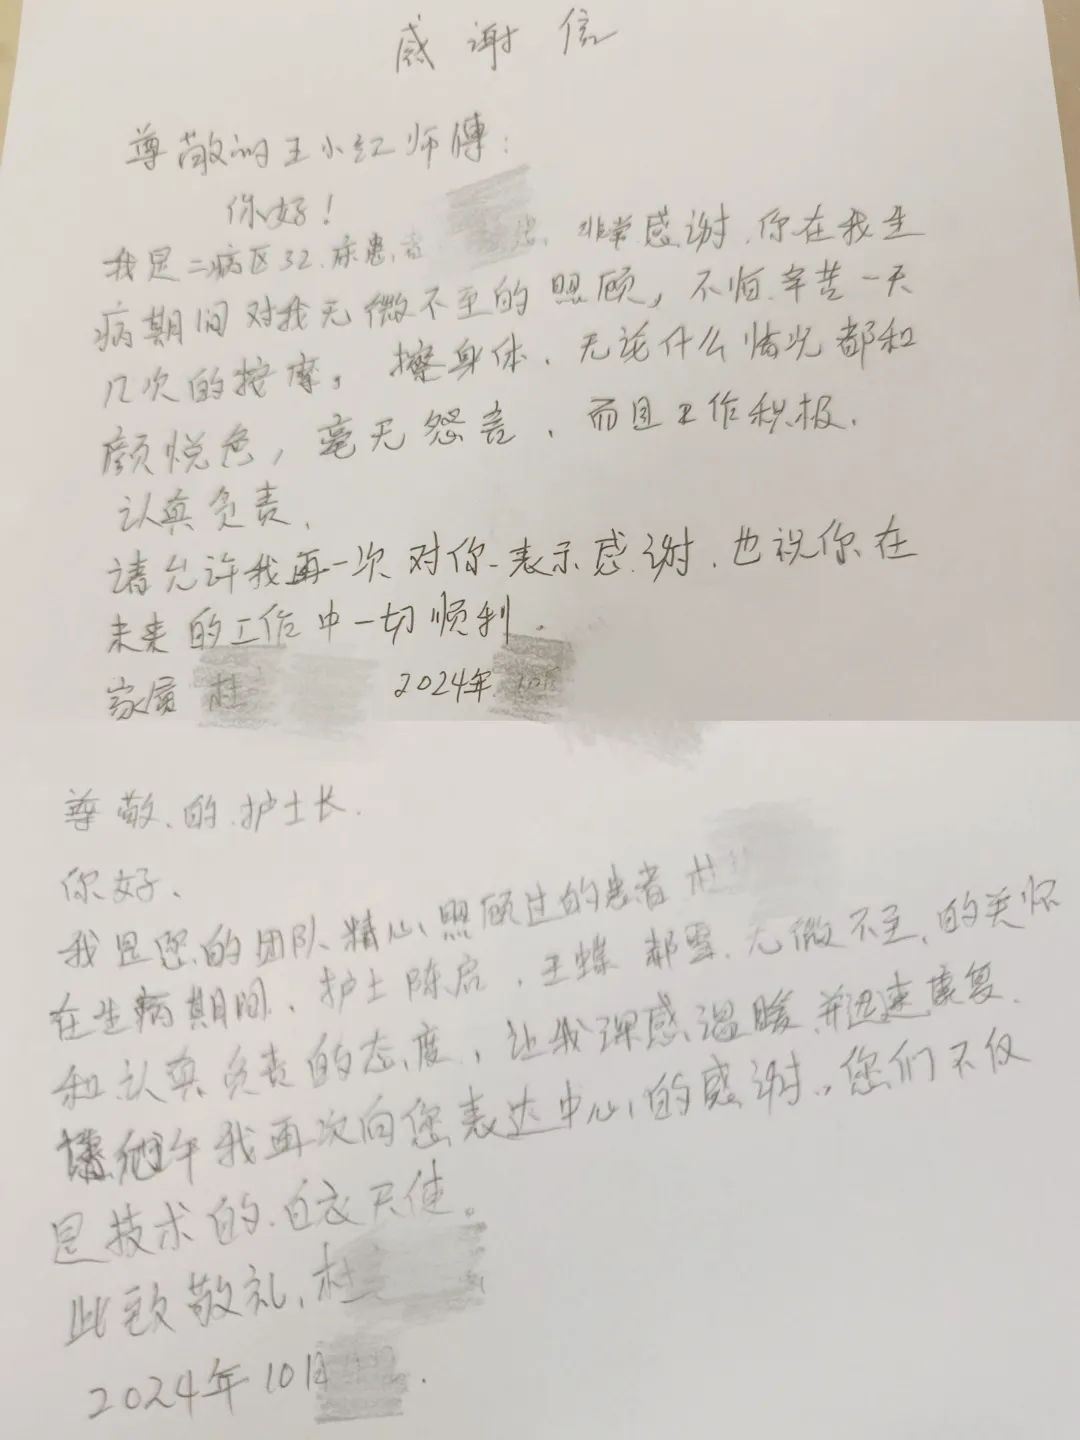 感谢信
尊敬的王小红师傅:
你好!
我是二病区32.床患者 非常感谢.你在我生
病期间对我无微不至的照顾,不怕辛苦一天
几次的按摩,擦身体、无论什么情况都和
颜悦色,毫无怨言、而且工作积极.
认真负责、
请允许我再一次对你表示感谢.也祝你在
未来的工作中一切顺利.
家属 杜 2024年
尊敬的护士长.
你好、
我是您的团队精心照顾过的患者 杜
在生病期间、护士陈启、王蝶 郝雪.无微不至的关怀
和认真负责的态度,让我深感温暖并迅速康复.
请允许我再次向您表达中心的感谢.您们不仅
是技术的.白衣天使。
此致敬礼,杜
2024年10月